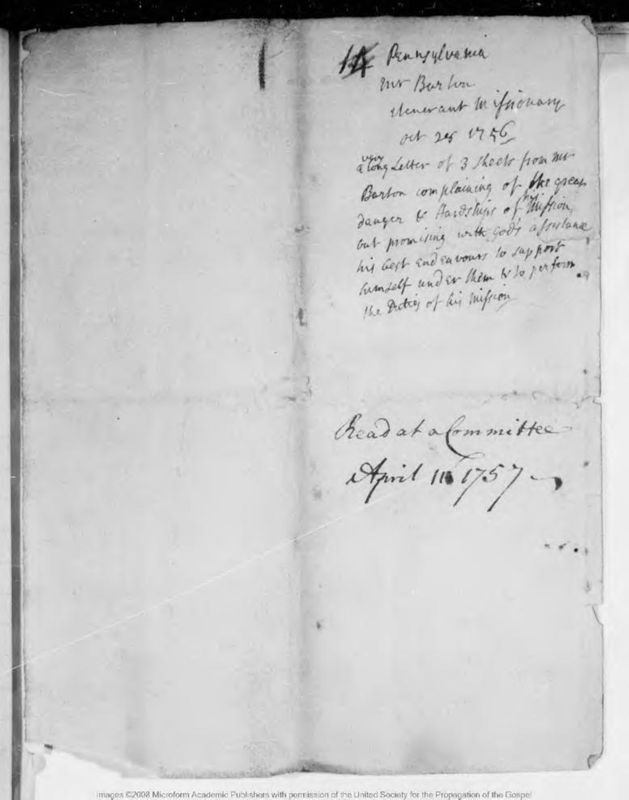 14 Pennsylvania
Mr Barton
itenerant Missionary
oct 28 1756
a very long Letter of 3 sheets from Mr
Barton complaining of the great
danger & Hardships of his Mission
but promising with god's assistance
his best endeavours to support
himself under them & to perform
the Duties of his Mission
Read at a Committee
April 11 1757
Images ©2008 Microform Academic Publishers with permission of the United Society for the Propagation of the Gospel